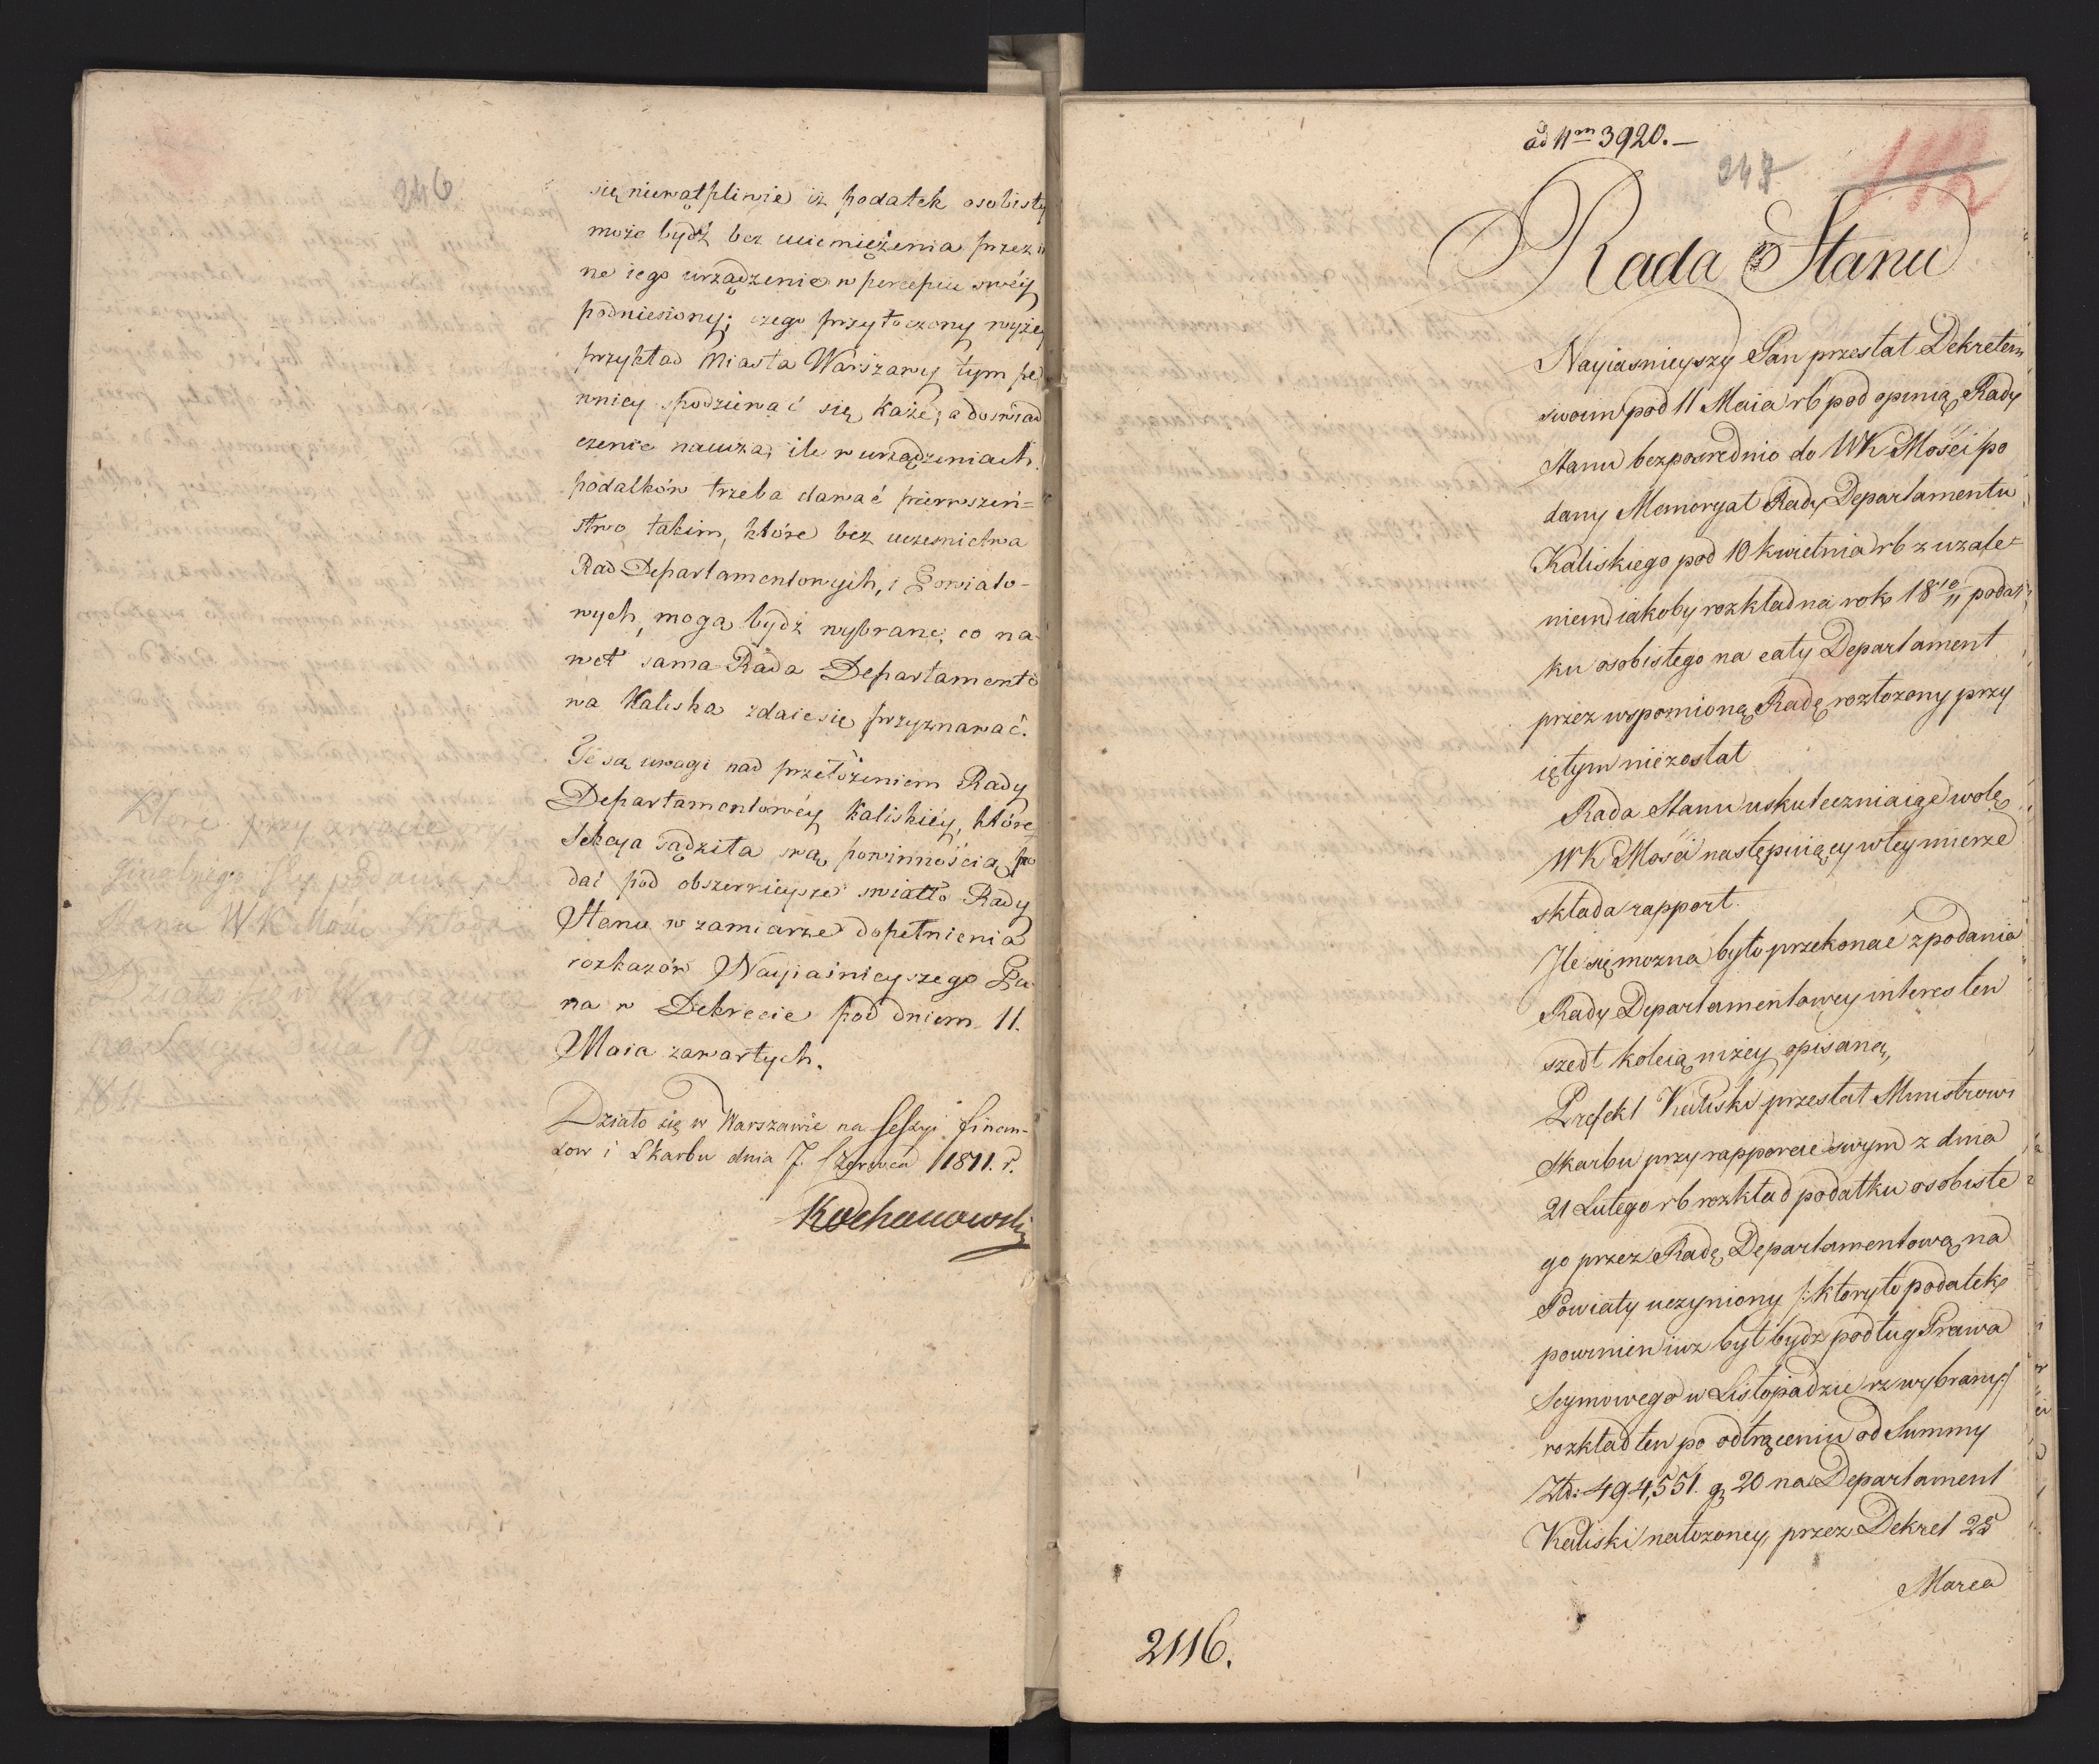 246
się niewątpliwie iż podatek osobisty
może bydź bez uciemiężenia przez in
ne iego urządzenie w percepcie swéy
podniesiony; czego przytoczony wyżey
przykład Miasta Warszawy tym pe
wniey spodziewać się każe; a doświad
czenie naucza, ile w urządzeniach
podatków trzeba dawać pierwszeń=
stwo takim, które bez uczesnictwa
Rad Departamentowych, i Powiato-
wych, mogą bydź wybrane; co na
wet sama Rada Departamento
wa Kaliska zdaie się przyznawać.
Te są uwagi nad przełożeniem Rady
Departamentowéy Kaliskiéy, które
Sekcya sądziła swą powinnością po
dać pod obszernieysze swiatło Rady
Stanu w zamiarze dopełnienia
rozkazów Nayiaśnieyszego Pa
na w Dekrecie pod dniem 11.
Maia zawartych.
Działo się w Warszawie na Sessyi finan-
sow i Skarbu dnia 7. Czerwca 1811. r.
Kochanowski
Które przy zwrocie ory
ginalnego podania, Ra
Stanu W K Mości składa
Działo się w Warszawie
na Sessyi dnia 19 Czer
1811
ad Nm 3920.—
247
Rada Stanu
Nayiasnieyszy Pan przesłał Dekretem
swoim pod 11 Maia rb pod opinią Rady
Stanu bezposrednio do WK Mości po
dany Memoryał Rady Departamentu
Kaliskiego pod 10 kwietnia rb z użale=
niem iakoby rozkład na rok 18 10/11 podat
ku osobistego na cały Departament
przez wspomnioną Radę rozłożony przy
iętym niezostał
Rada Stanu uskuteczniaiąc wolę
WK Mości następuiący w tey mierze
składa rapport.
Ile się można było przekonać z podania
Rady Departamentowey interes ten
szedł koleią niżey opisaną,
Prefekt Kaliski przesłał Ministrowi
Skarbu przy rapporcie swym z dnia
21 Lutego rb rozkład podatku osobiste
go przez Radę Departamentową na
Powiaty uczyniony /: który to podatek
powinien iuz był bydz podług Prawa
Seymowego w Listopadzie rz wybrany :/
rozkład ten po odtrąceniu od Summy
Złł: 494,551. gr 20 na Departament
Kaliski nałożoney, przez Dekret 28
Marca
2116.